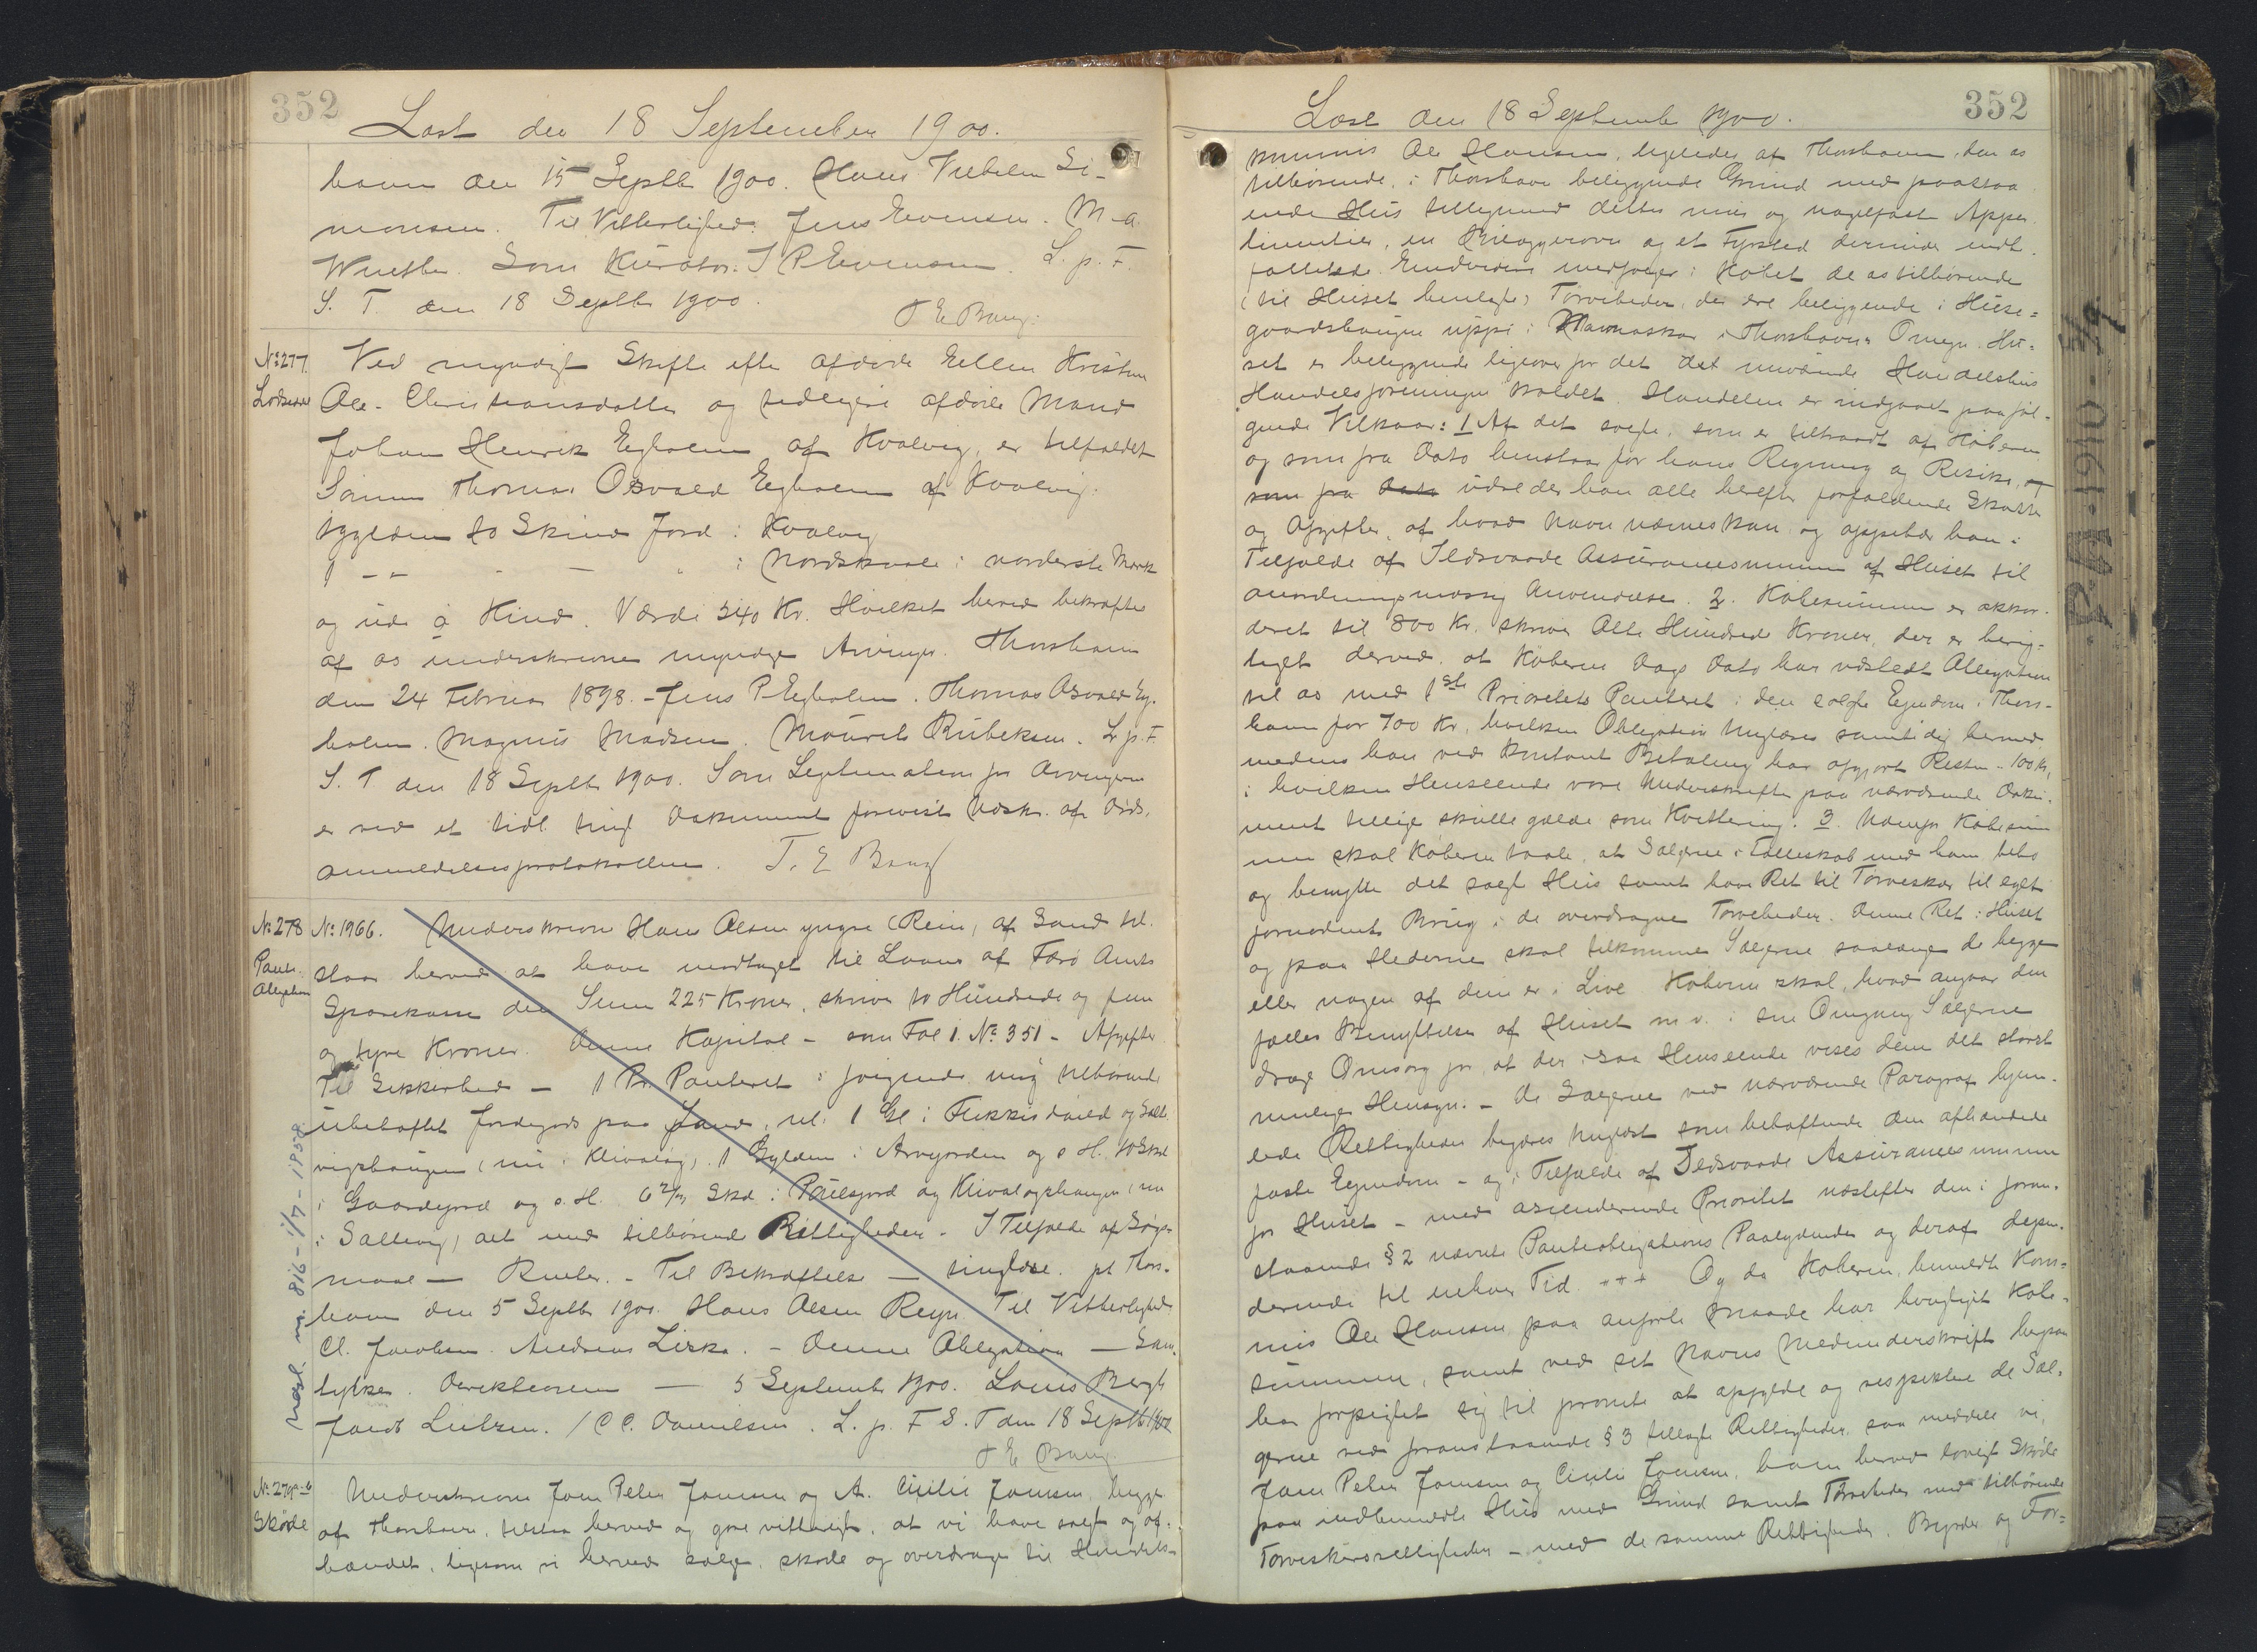 352
Læst den 18 September 1900.
havn den 15 Septbr 1900. Hans Vilhelm Si-
monsen. Til Vitterlighed: Jens Evensen. M. A.
Winther. Som Kurator. J P Evensen. L. p. F.
S. T. den 18 Septbr 1900.
T E Bang.
No 277.
Ved myndigt Skifte efter afdøde Ellen Kristine
Ole-Christiansdatter og tidligere afdøde Mand
Johan Henrik Egholm af Kvalvig, er tilfaldet
Sønnen Thomas Osvald Egholm af Kvalvig:
1 Gylden 10 Skind Jord i Kvalvig
1 - " - - " i Nordskaale i nørderste Mark
og ude á Kind. Værdi 340 Kr. Hvilket herved bekræftes
af os underskrevne myndige Arvinger. Thorshavn
den 24 Februar 1898. - Jens P Egholm. Thomas Osvald Eg-
holm. Magnus Madsen. Mourits Rubeksen. L. p. F.
S. T den 18 Septbr 1900. Som Legitimation for Arvingerne
er ved et tidl. tingl. Dokument forevist Udskr. af Døds-
anmeldelsesprotokollen. T. E Bang
No 278
Pante-
Obligation
No 1966. Underskrevne Hans Olsen yngre (Rein) af Sand til-
staar herved at have modtaget til Laans af Færø Amts
Sparekasse den Sum 225 Kroner, skriver to Hundrede og fem
og tyve Kroner. Denne Kapital - som Fol 1. No 351 - Afgifter
Til Sikkerhed - 1 Pr. Panteret i følgende mig tilhørende
ubehæftet Jordegods paa Sand, nl. 1 Gl i
vigshaugen (nu i Klivalög). 1 Gylden i og s. H. 10 Skd
i Gaardsjord og s. H. 6 2/3 Skd i Poulsjord og Klivalogshaugen (nu
i Saltvig) alt med tilhørende Rettigheder - I Tilfælde af Søgs-
maal - Renter. - Til Bekræftelse - tinglæse. pt Thors-
havn den 5 Septbr 1900. Hans Olsen Reyn. Til Vitterlighed:
Cl. Jacobsen. Andreas Lisko. - Denne Obligation - Sam-
tykker. Direktionen - 5 September 1900. Louis Bergh
Jacob Lützen. / C C. Danielsen. L. p. F S. T den 18 Septbr 1900
T E Bang.
Næst. nr. 816 - 1/7 - 1958
No 279 a-b
Skøde
Underskrevne Joen Peter Joensen og A. Cicilie Joensen, begge
af Thorshavn, tilstaa herved og gøre vitterligt, at vi have solgt og af-
hændet, ligesom vi herved sælge, skøde og overdrage til Handels-
352
Læst den 18 September 1900.
kommis Ole Hansen, ligeledes af Thorshavn, den os
tilhørende, i Thorshavn beliggende Grund med paastaa-
ende Hus tilligemed dettes mur og nagelfast Apper-
tinentier, en Bilæggerovn og et Fyrsted derunder indt-
fattede. Endvidere medfølger i Købet de os tilhørende
(til Huset henlagte) Tørveheder, der ere beliggende i Huse-
gaardshaugen uppi i i Thorshavns Omegn. Hu-
set er beliggende ligeover for det det nuværende Handelshus
Handelsforeningen kaldet. Handelen er indgaaet paa føl-
gende Vilkaar: 1 Af det solgte, som er tiltraadt af Køberen
og som fra Dato henstaar for hans Regning og Risiko, og
som fra Dato udreder han alle herefter forfaldende Skatter
og Afgifter, af hvad Navn nævnes kan og oppebær han i
Tilfælde af Ildsvaade Assurancesummen af Huset til
anordningsmæssig Anvendelse. 2. Købesummen er akkor-
deret til 800 Kr. skriver Otte Hundrede Kroner, der er berig-
tiget derved, at Køberen Dags Dato har udstedt Obligation
til os med 1ste Prioritets Panteret i den solgte Ejendom i Thors-
havn for 700 Kr, hvilken Obligation tinglæses samtidig hermed
medens han ved kontant Betaling har afgjort Resten - 100 Kr,
i hvilken Henseende vore Underskrifter paa nærværende Doku-
ment tillige skulle gælde som Kvittering. 3. Købesum-
men skal Køberen taale, at Sælgerne i Fælleskab med ham bebo
og benytte det solgte Hus samt have Ret til Tørveskær til eget
fornødent Brug i de overdragne Tørveheder. Denne Ret i Huset
og paa Hederne skal tilkomme Sælgerne saalænge de begge
eller nogen af dem er i Live. Køberen skal, hvad angaar den
fælles Benyttelse af Huset m.v. i sin Omgang Sælgerne
drage Omsorg for, at der i saa Henseende vises dem det størst
mulige Hensyn. - De Sælgerne ved nærværende Paragraf hjem-
lede Rettigheder begæres tinglæst som behæftende den afhændede
faste Ejendom - og i Tilfælde af Ildsvaade Assurancesummen
for Huset - med ascenderende Prioritet næstefter den i foran-
staaende § 2 nævnte Panteobligations Paalydende og deraf depen-
derende til enhver Tid. +++ Og da Køberen, bemeldte Kom-
mis Ole Hansen paa anførte Maade har berigtiget Købe-
summen, samt ved sit Navns Medunderskrift
har forpligtet sig til promte at opfylde og respektere de Sæl-
gerne ved foranstaaende § 3 tillagte Rettigheder, saa meddele vi,
Joen Peter Joensen og Cicilie Joensen, ham herved lovligt Skøde
paa indbemeldte Hus med Grund samt Tørveheder med tilhørende
Tørveskærsrettigheder - med de samme Rettigheder, Byrder og For-
P.A. 1910 - 5/9